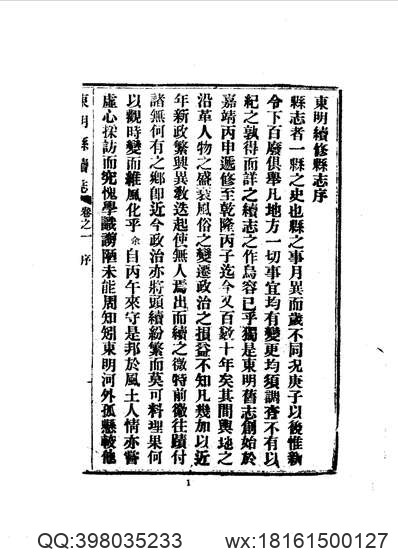 東明續修縣志序
縣志者一縣之史也縣之事月異而歲不同况庚子以後惟新
令下百廢俱舉凡地方一切事宜均有變更均須調查不有以
紀之孰得而詳之續志之作烏容已乎獨是東明舊志創始於
嘉靖丙申遞修至乾隆丙子迄今又百數十年矣其間輿地之
沿革人物之盛衰風俗之變遷政治之損益不知凡幾加以近
年新政繁興異教迭起使無人焉出而續之微特前徽往蹟付
諸無何有之鄉即近今政治亦將頭緒紛繁而莫可料理果何
以觀時變而維風化乎余自丙午來守是邦於風土人情亦嘗
虛心採訪而究愧學識謭陋未能周知矧東明河外孤懸較他
東明縣續志 卷之一 序
1
QQ:398035233
wx:18161500127